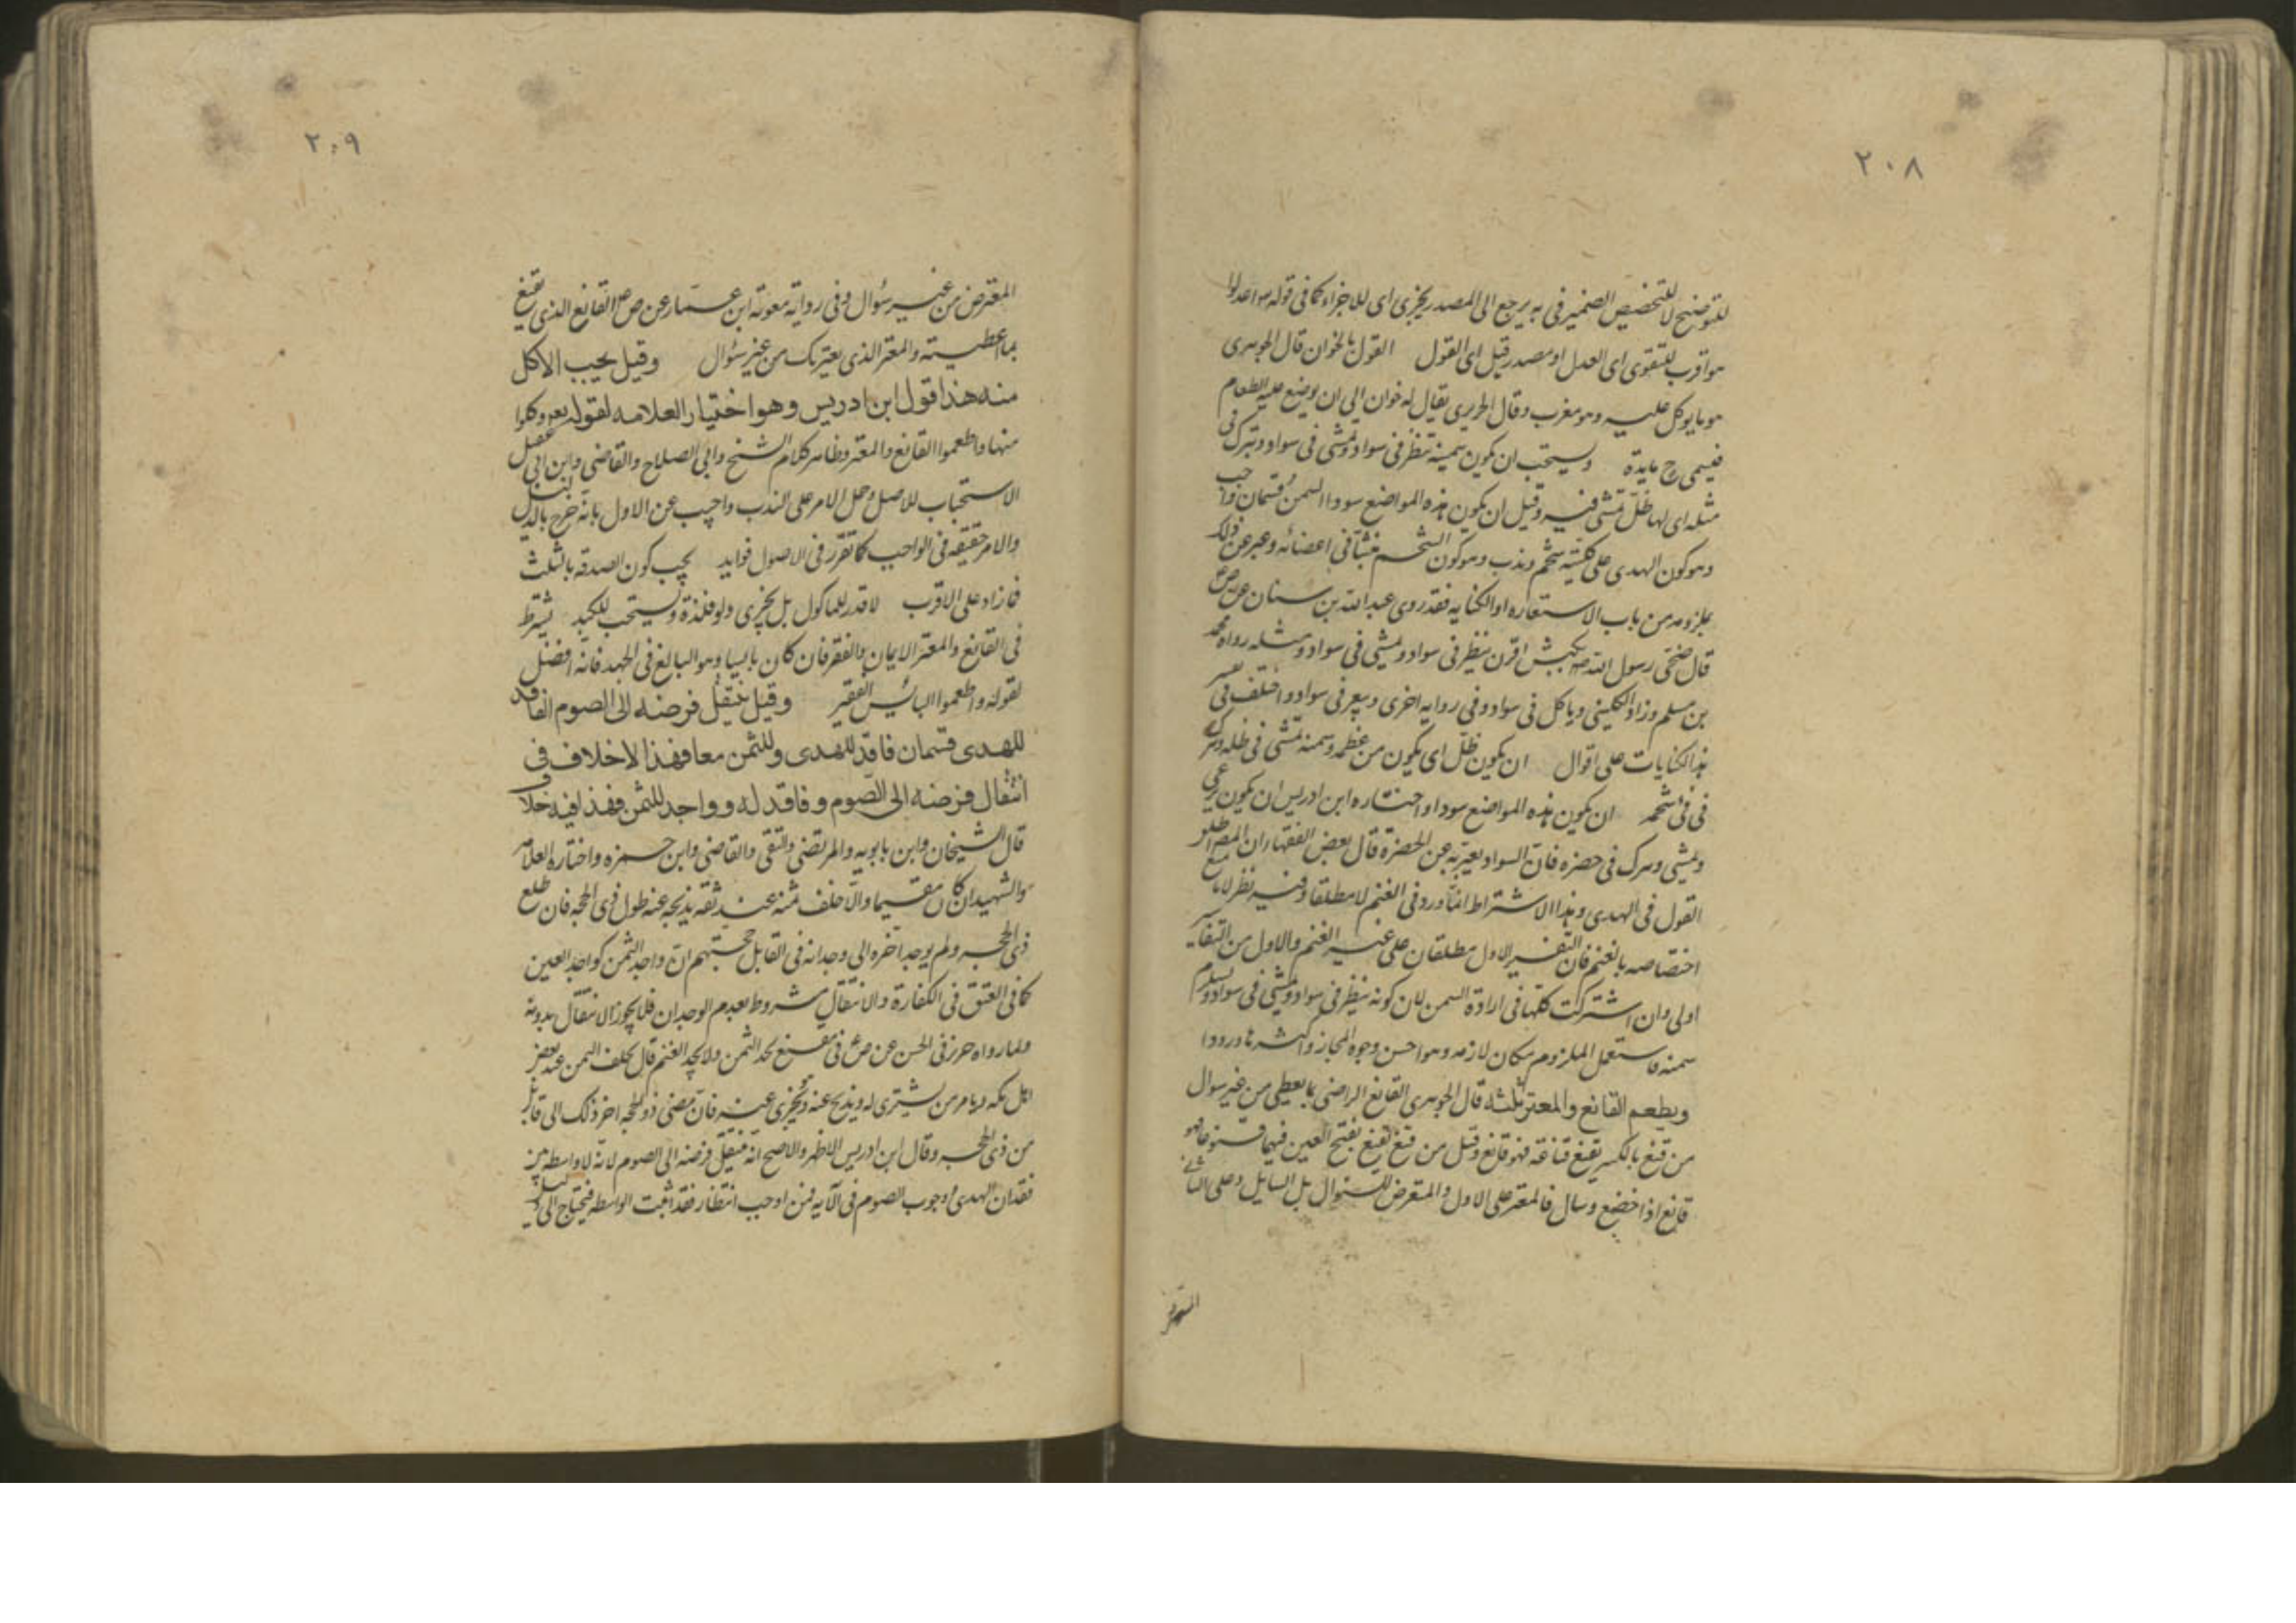 ٢٠٨
للتوضيح لا للتخصيص الضمير في به يرجع الى المصدر يجزي اى للاجزاء كما في قوله هو اعدلوا
هو اقرب للتقوى اى العدل او مصدر قيل اى القول القول بالخوان قال الجوهرى
هو ما يوكل عليه وهو معرب وقال الحريرى يقال له خوان الى ان يوضع عليه الطعام
فيسمى ح مايدة ويستحب ان يكون سمينة تنظر في سواد وتمشى في سواد وتبرك في
مثله اى لها ظل تمشى فيه وقيل ان يكون هذه المواضع سودا السمن قسمان واجب
وهو كون الهدى على كليتيه شحم وندب وهو كون الشحم في اعضائه وعبر عن ذلك
بملزومه من باب الاستعاره او الكنايه فقد روى عبد الله بن سنان عن ص
قال ضحى رسول الله ص بكبش اقرن ينظر في سواد ويمشى في سواد ومثله رواه محمد
بن مسلم وزاد الكلينى وياكل في سواد وفي روايه اخرى ويبعر في سواد واختلف في تفسير
هذه الكنايات على اقوال ان يكون ظل اى يكون من عظمه وسمنه تمشى في ظله وتبرك
في فئ شحمه ان يكون هذه المواضع سودا واختاره ابن ادريس ان يكون رعى
ويمشى وبرك في خضره فان السواد يعبر به عن الخضرة قال بعض الفقهاء ان
القول في الهدى وهذا الاشتراط انما ورد في الغنم لا مطلقا وفيه نظر لا
اختصاصه بالغنم فان التفسير الاول مطلقان على غير الغنم والاول من التفاسير
اولى وان اشتركت كلها في ارادة السمن لان كونه ينظر في سواد ويمشى في سواد
سمنه فاستعمل الملزوم مكان لازمه وهو احسن وجوه المجاز واكثرها ورودا
ويطعم القانع والمعتر ثلثه قال الجوهرى القانع الراضى بما يعطى من غير سوال
من قنع بالكسر يقنع قناعة فهو قانع وقيل من قنع يقنع بفتح العين فيهما قنوعا فهو
قانع اذا خضع وسال فالمعتر على الاول والمتعرض للسؤال بل السايل وعلى الثانى
٢٠٩
المعترض من غير سؤال وفى رواية معوية ابن عمار عن ص القانع الذى يقنع
بما اعطيته والمعتر الذى يعتريك من غير سؤال وقيل يجب الاكل
منه هذا قول ابن ادريس وهو اختيار العلامه لقوله تع وكلوا
منها واطعموا القانع والمعتر وظاهر كلام الشيخ وابى الصلاح والقاضى وابن ابى عقيل
الاستحباب للاصل وحمل الامر على الندب واجيب عن الاول بانه خرج بالدليل
والامر حقيقه في الواجب كما تقرر في الاصول فوايد يجب كون الصدقه بالثلث
فما زاد على الاقرب لا قدر للماكول بل يجزى ولو فلذة ويستحب للكبد يشترط
في القانع والمعتر الايمان والفقر فان كان بايسا وهو البالغ في الجهد فانه افضل
لقوله واطعموا البائس الفقير وقيل ينتقل فرضه الى الصوم الفاقد
للهدى قسمان فاقد للهدى وللثمن معا فهذا لاخلاف فى
انتقال فرضه الى الصوم وفاقد له وواجد للثمن فهذا فيه خلاف
قال الشيخان وابن بابويه والمرتضى والتقى والقاضى وابن حمزه واختاره العلامه
والشهيد ان كان مقيما والا خلف ثمنه عند ثقه يذبحه عنه طول ذى الحجه فان طلع
ذى الحجه ولم يوجد اخره الى وجدانه في القابل حجتهم ان واجد الثمن كواجد العين
كما في العتق في الكفارة والانتقال مشروط بعدم الوجدان فلا يجوز الانتقال بدونه
ولما رواه حريز في الحسن عن ص في متمتع يجد الثمن ولا يجد الغنم قال يخلف الثمن عند بعض
اهل مكه ويامر من يشترى له ويذبح عنه ويجزى عنه فان مضى ذو الحجه اخر ذلك الى قابل
من ذى الحجه وقال ابن ادريس الاظهر والاصح انه ينتقل فرضه الى الصوم لانه لا واسطه بين
فقدان الهدى ووجوب الصوم في الآيه فمن اوجب انتظار فقد اثبت الواسطه فيحتاج الى دليل